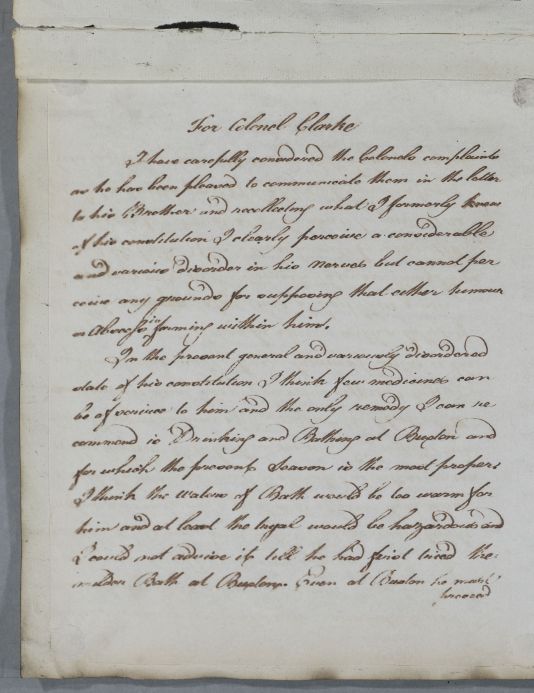 For Colonel Clarke
I have carefully considered the Colonels complaints
as he has been pleased to communicate them in the letter
to his Brother and recollecting what I formerly knew
of his constitution I clearly perceive a considerable
and various disorder in his nerves but cannot per
ceive any grounds for supposing that either tumour
or Abscess is forming within him.
In the present general and variously disordered
state of his constitution I think few medicines can
be of service to him and the only remedy I can re
commend is Drinking and Bathing at Buxton and
for which the present Season is the most proper:
I think the waters of Bath would be too warm for
him and at least the tryal would be hazardous and
I could not advise it till he had first tried the
milder Bath at Buxton. Even at Buxton he must
proceed